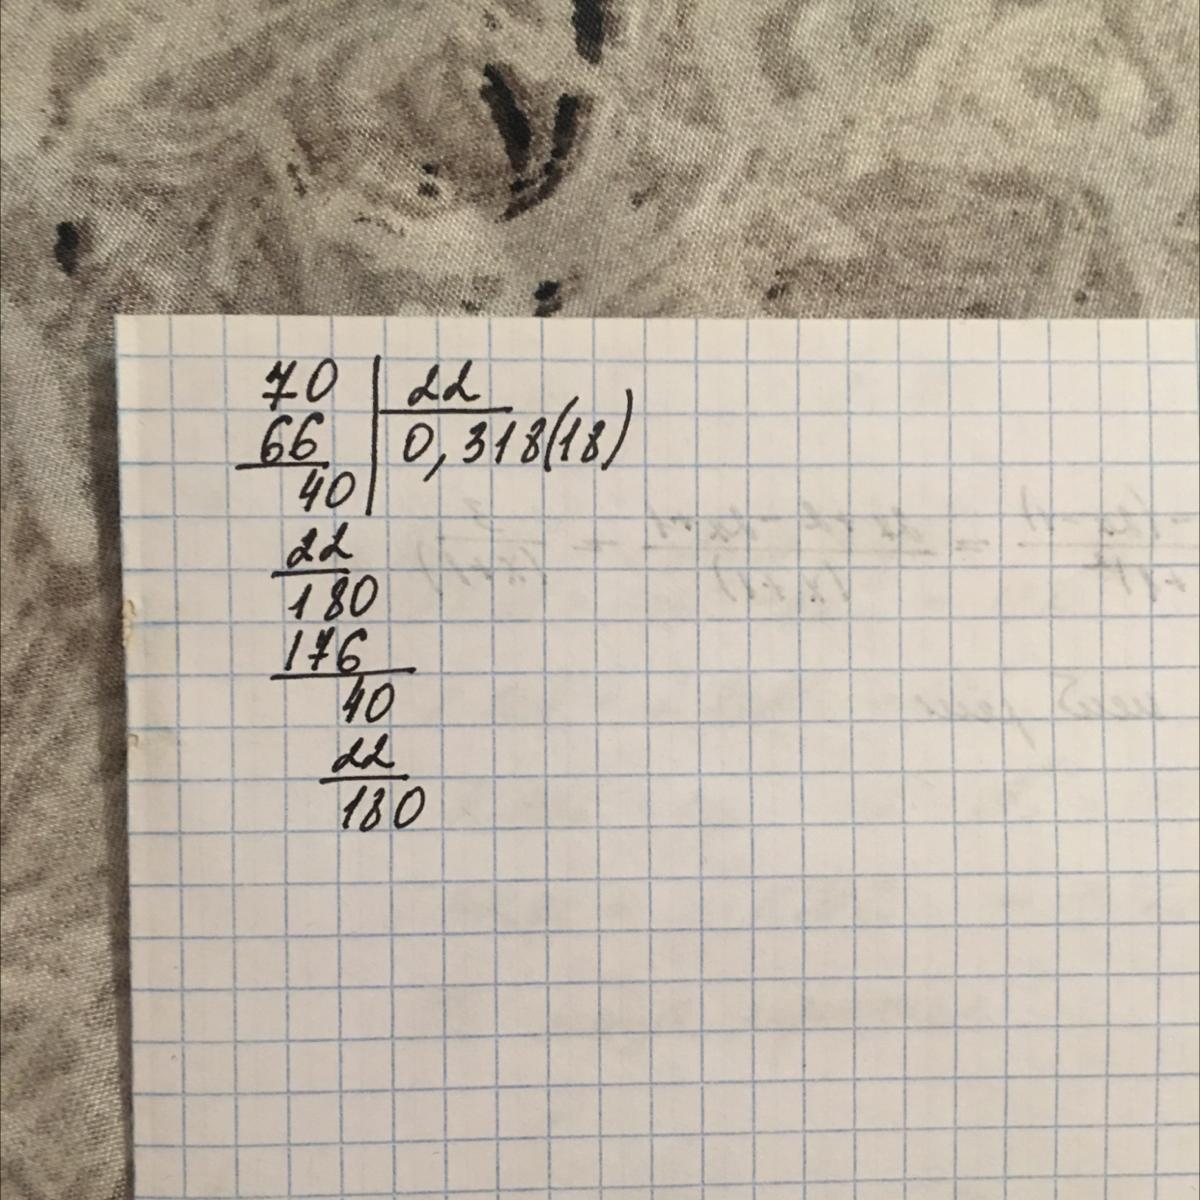 70 22
66 0,318(18)
40
22
180
176
40
22
180